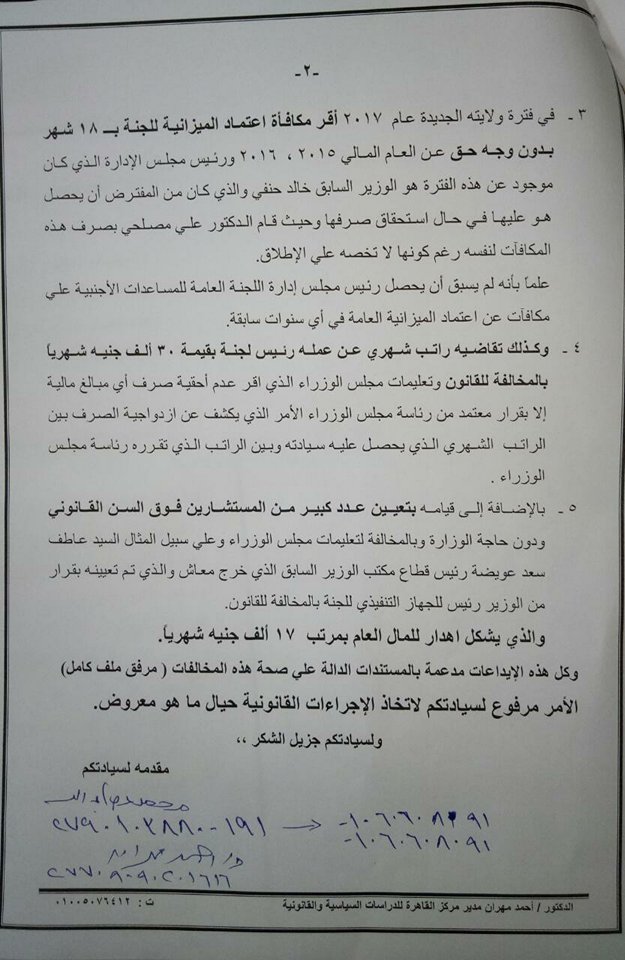 -٢-
٣ ـ في فترة ولايته الجديدة عام ٢٠١٧ أقر مكافأة اعتماد الميزانية للجنة بـــ ١٨ شهر
بدون وجه حق عن العام المالي ٢٠١٥ ، ٢٠١٦ ورئيس مجلس الإدارة الذي كان
موجود عن هذه الفترة هو الوزير السابق خالد حنفي والذي كان من المفترض أن يحصل
هو عليها في حال استحقاق صرفها وحيث قام الدكتور علي مصلحي بصرف هذه
المكافآت لنفسه رغم كونها لا تخصه علي الإطلاق.
علماً بأنه لم يسبق أن يحصل رئيس مجلس إدارة اللجنة العامة للمساعدات الأجنبية علي
مكافآت عن اعتماد الميزانية العامة في أي سنوات سابقة.
٤ ـ وكذلك تقاضيه راتب شهري عن عمله رئيس لجنة بقيمة ٣٠ ألف جنيه شهرياً
بالمخالفة للقانون وتعليمات مجلس الوزراء الذي اقر عدم أحقية صرف أي مبالغ مالية
إلا بقرار معتمد من رئاسة مجلس الوزراء الأمر الذي يكشف عن ازدواجية الصرف بين
الراتب الشهري الذي يحصل عليه سيادته وبين الراتب الذي تقرره رئاسة مجلس
الوزراء .
٥ ـ بالإضافة إلى قيامه بتعيين عدد كبير من المستشارين فوق السن القانوني
ودون حاجة الوزارة وبالمخالفة لتعليمات مجلس الوزراء وعلي سبيل المثال السيد عاطف
سعد عويضة رئيس قطاع مكتب الوزير السابق الذي خرج معاش والذي تم تعيينه بقرار
من الوزير رئيس للجهاز التنفيذي للجنة بالمخالفة للقانون.
والذي يشكل اهدار للمال العام بمرتب ١٧ ألف جنيه شهرياً.
وكل هذه الإيداعات مدعمة بالمستندات الدالة علي صحة هذه المخالفات ( مرفق ملف كامل)
الأمر مرفوع لسيادتكم لاتخاذ الإجراءات القانونية حيال ما هو معروض.
ولسيادتكم جزيل الشكر ،،
مقدمه لسيادتكم
الدكتور / أحمد مهران مدير مركز القاهرة للدراسات السياسية والقانونية
ت : ٠١٠٠٥٠٧٦٤١٢